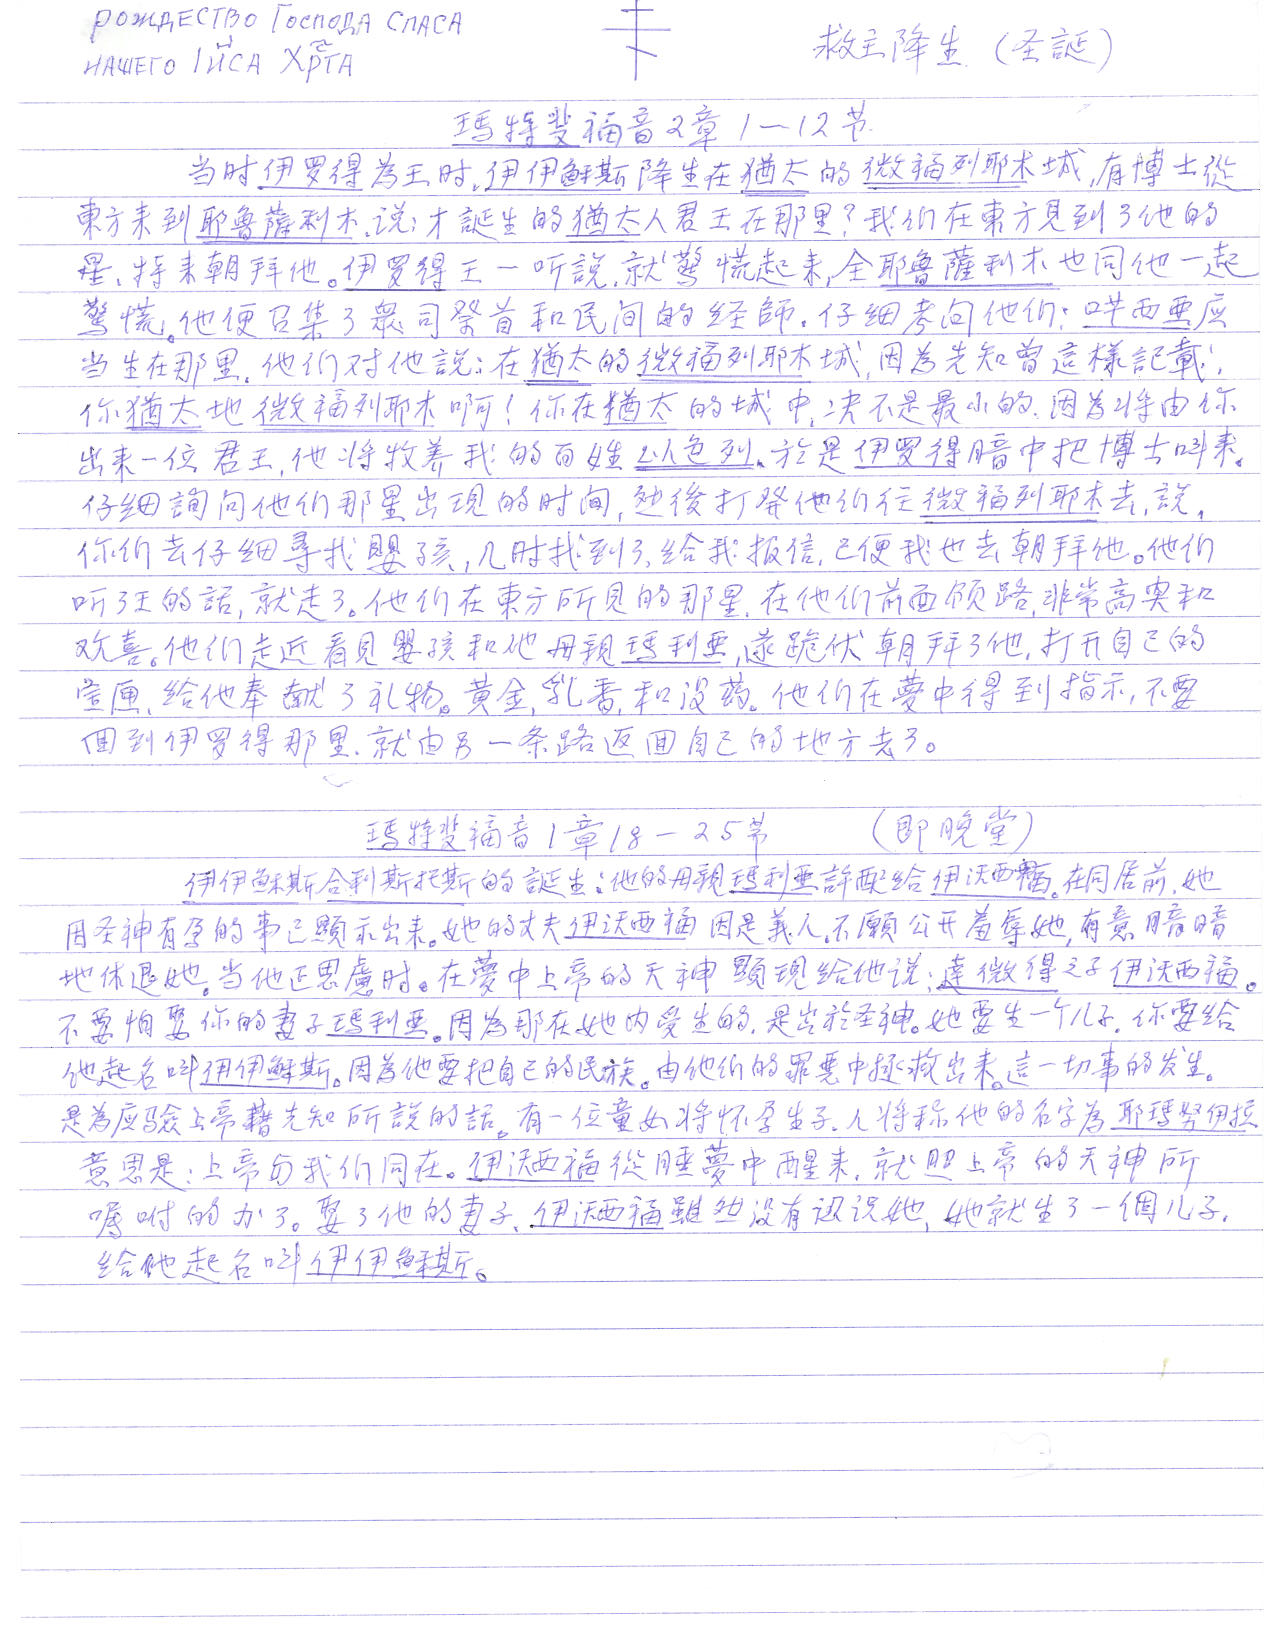 РОЖДЕСТВО ГОСПОДА СПАСА
НАШЕГО ІИСА ХРТА
救主降生（圣誕）
瑪特斐福音2章1—12节
当时伊罗得為王时,伊伊穌斯降生在猶太的微福列耶木城,有博士從
東方来到耶魯薩利木.说:才誕生的猶太人君王在那里?我们在東方見到了他的
星、特来朝拜他。伊罗得王一听説.就驚慌起来,全耶魯薩利木也同他一起
驚慌。他便召集了眾司祭首和民间的经師.仔細考问他们:咩西亜应
当生在那里.他们对他説:在猶太的微福列耶木城,因為先知曾這樣記載:
你猶太地微福列耶木啊!你在猶太的城中,决不是最小的.因為将由你
出来一位君王,他将牧養我的百姓以色列。於是伊罗得暗中把博士叫来。
仔细詢问他们那星出現的时间,然後打発他们往微福列耶木去,説,
你们去仔細尋找嬰孩,几时找到了.給我报信,已便我也去朝拜他。他们
听了王的話,就走了。他们在東方所見的那星.在他们前面领路,非常高奥和
欢喜。他们走近看見嬰孩和他母親瑪利亜,遂跪伏朝拜了他,打开自己的
宝匣、给他奉献了礼物。黄金,乳香,和没药。他们在夢中得到指示,不要
回到伊罗得那里.就由另一条路返回自己的地方去了。
瑪特斐福音1章18—25节 （即晚堂）
伊伊穌斯合利斯托斯的誕生:他的母親瑪利亜許配给伊沃西福。在同居前,她
因圣神有孕的事已顯示出来。她的丈夫伊沃西福因是義人.不願公开羞辱她,有意暗暗
地休退她。当他正思慮时。在夢中上帝的天神顕現给他说:達微得之子伊沃西福。
不要怕娶你的妻子瑪利亜。因為那在她内受生的.是出於圣神。她要生一个儿子.你要给
他起名叫伊伊穌斯。因為他要把自己的民族。由他们的罪悪中拯救出来。這一切事的发生。
是為应験上帝藉先知所説的話。有一位童女将怀孕生子.人将称他的名字為耶瑪努伊拉
意思是:上帝与我们同在。伊沃西福從睡夢中醒来.就照上帝的天神所
嘱咐的办了。娶了他的妻子、伊沃西福雖然没有认识她,她就生了一個儿子.
给他起名叫伊伊穌斯。